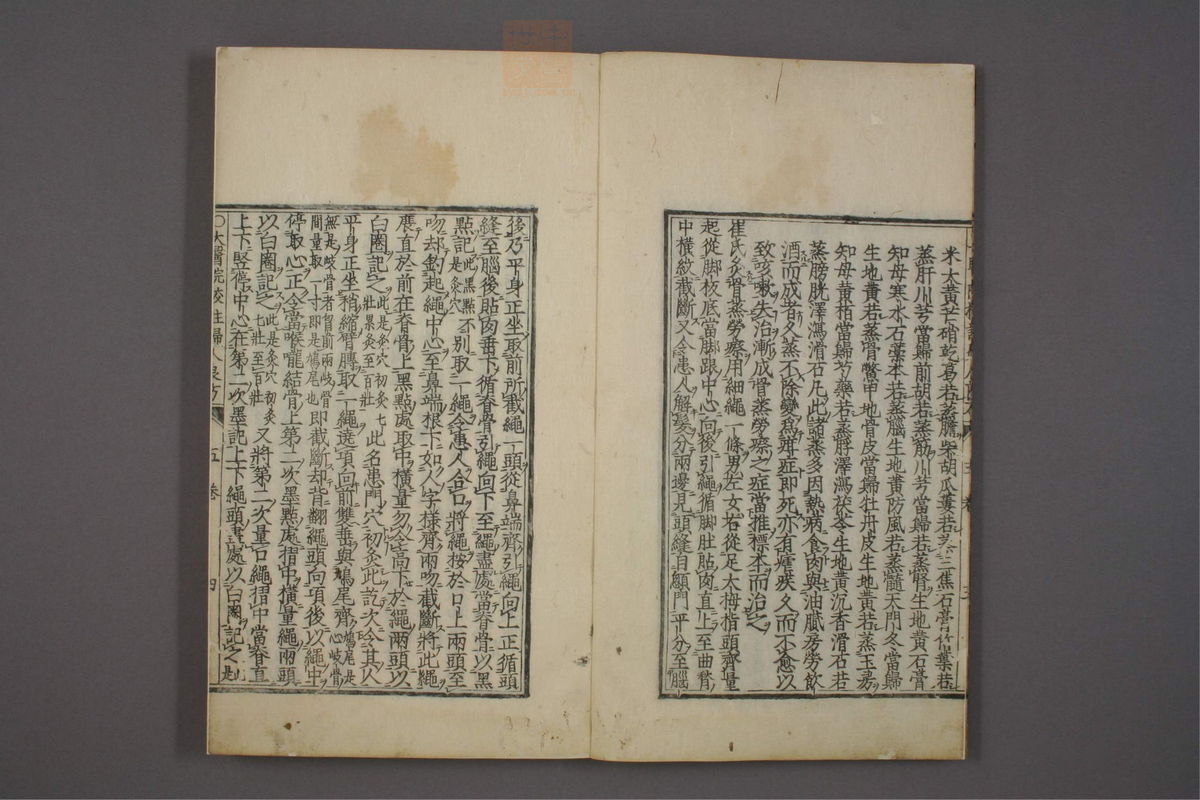 米大黃芒硝乾葛若蒸膽柴胡瓜蔞若蒸三焦石膏竹葉若
蒸肝川芎當歸前胡若蒸筋川芎當歸若蒸腎生地黃石膏
知母寒水石藁本若蒸腦生地黃防風若蒸髓天門冬當歸
生地黃若蒸骨鱉甲地骨皮當歸牡丹皮生地黃若蒸玉房
知母黃栢當歸芍藥若蒸脬澤瀉茯苓生地黃沉香滑石若
蒸膀胱澤瀉滑石凡此諸蒸多因熱病食肉與油膩房勞飲
酒而成者久蒸不除變爲疳症即死亦有瘧疾久而不愈以
致咳嗽失治漸成骨蒸勞瘵之症當推標本而治之
崔氏灸骨蒸勞瘵用細繩一條男左女右從足太拇指頭齊量
起從脚板底當脚跟中心向後引繩循脚肚貼肉直上至曲䐐
中橫紋截斷又令患人解髮分兩邊見頭縫自顖門平分至腦
後乃平身正坐取前所截繩一頭從鼻端齊引繩向上正循頭
縫至腦後貼肉垂下循脊骨引繩向下至繩盡處當脊骨以黑
點記此黑點不是灸穴別取一繩令患人合口將繩按於口上兩頭至
吻却鈎起繩中心至鼻端根下如人字樣齊兩吻截斷將此繩
展直於前在脊骨上黑點處取中橫量勿令高下於繩兩頭以
白圈記之此是灸穴初灸七壯累灸至百壯此名患門穴初灸此訖次令其人
平身正坐稍縮臂膊取一繩遶項向前雙垂與鳩尾齊鳩尾是心岐骨
無是岐骨者胷前兩岐骨間量取一寸即是鳩尾也即截斷却背翻繩頭向項後以繩中
停取心正令當喉嚨結骨上第二次墨點處摺中橫量繩兩頭
以白圈記之此是灸穴初灸七壯至百壯又將第二次量口繩摺中當脊直
上下竪舊中心在第二次墨記上下繩頭盡處以白圈記之是
○太醫院校註婦人良方 五卷 四